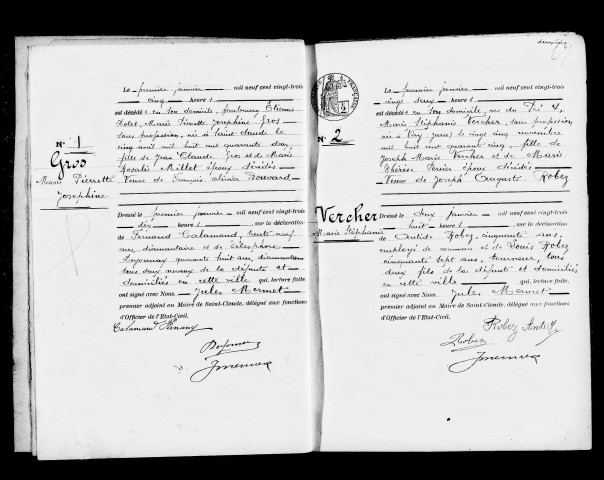 N° 1
Gros
Marie Pierrette
Joséphine
Le premier janvier mil neuf cent vingt-trois
cinq heure
est décédée en son domicile, faubourg Etienne
Dolet, Marie Pierrette Joséphine Gros
sans profession, née à Saint Claude le
cinq août mil huit cent quarante deux
fille de Jean Claude Gros et de Marie
Rosalie Millet époux décédés
Veuve de François Olivier Bouvard
Dressé le premier janvier mil neuf cent vingt-trois
dix heure sur la déclaration
de Fernand Calamand, trente neuf
ans, diamantaire et de Télesphore
quarante huit ans, diamantaire
tous deux neveux de la défunte et
domiciliés en cette ville qui, lecture faite,
ont signé avec Nous, Jules Mermet
premier adjoint au Maire de Saint-Claude, délégué aux fonctions
d'Officier de l'Etat-Civil.
Calamand Fernand
JMermet
N° 2
Vercher
Marie Stéphanie
Le premier janvier mil neuf cent vingt-trois
vingt deux heure
est décédée en son domicile, rue du Pré 4,
Marie Stéphanie Vercher sans profession,
née à Viry (Jura) le vingt cinq novembre
mil huit cent quarante cinq, fille de
Joseph Marie Vercher et de Marie
Thérèse Perrier époux décédés
Veuve de Joseph Auguste Robez
Dressé le deux janvier mil neuf cent vingt-trois
huit heure sur la déclaration
de Antide Robez, cinquante ans,
employé de commerce et de Louis Robez
cinquante sept ans, tourneur, tous
deux fils de la défunte et domiciliés
en cette ville qui, lecture faite,
ont signé avec Nous, Jules Mermet
premier adjoint au Maire de Saint-Claude, délégué aux fonctions
d'Officier de l'Etat-Civil.
Robez Antide
Robez
JMermet